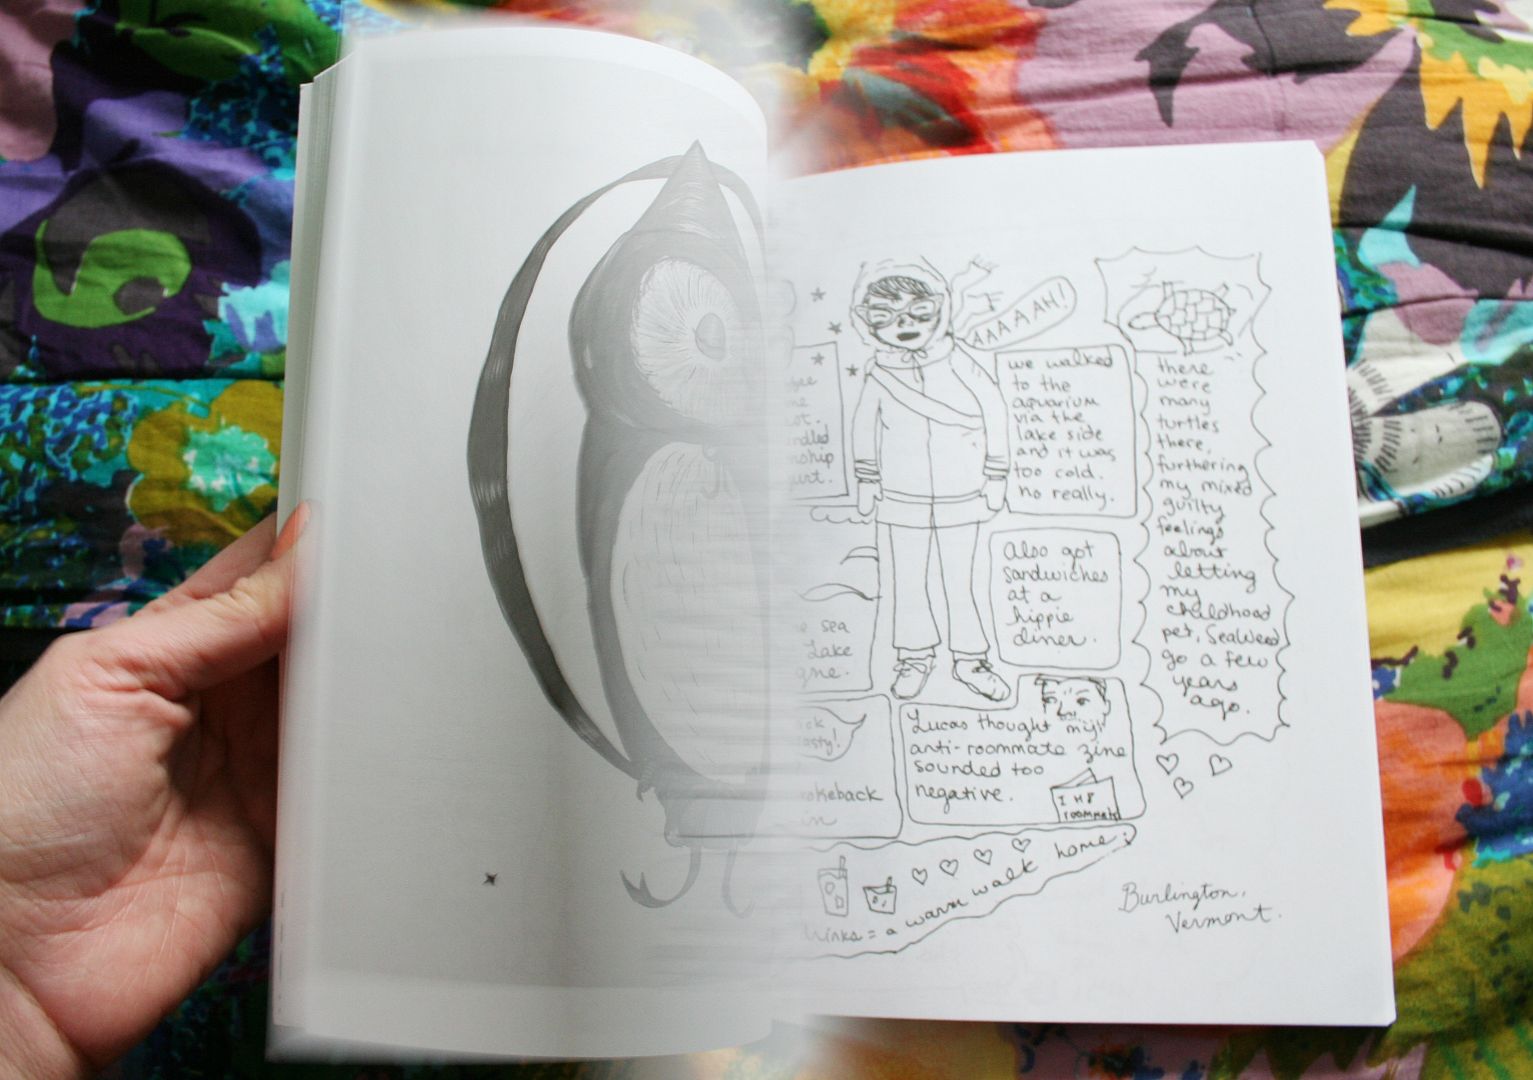 AAAAAH!
we walked
to the
aquarium
via the
lake side
and it was
too cold.
no really.
there
were
many
turtles
there,
furthering
my mixed
guilty
feelings
about
letting
my
childhood
pet, Seaweed
go a few
years
ago.
Also got
sandwiches
at a
hippie
diner.
sea
Lake
Lucas thought my
anti-roommate zine
sounded too
negative.
I H8
roommate
= a warm walk home;
Burlington,
Vermont.